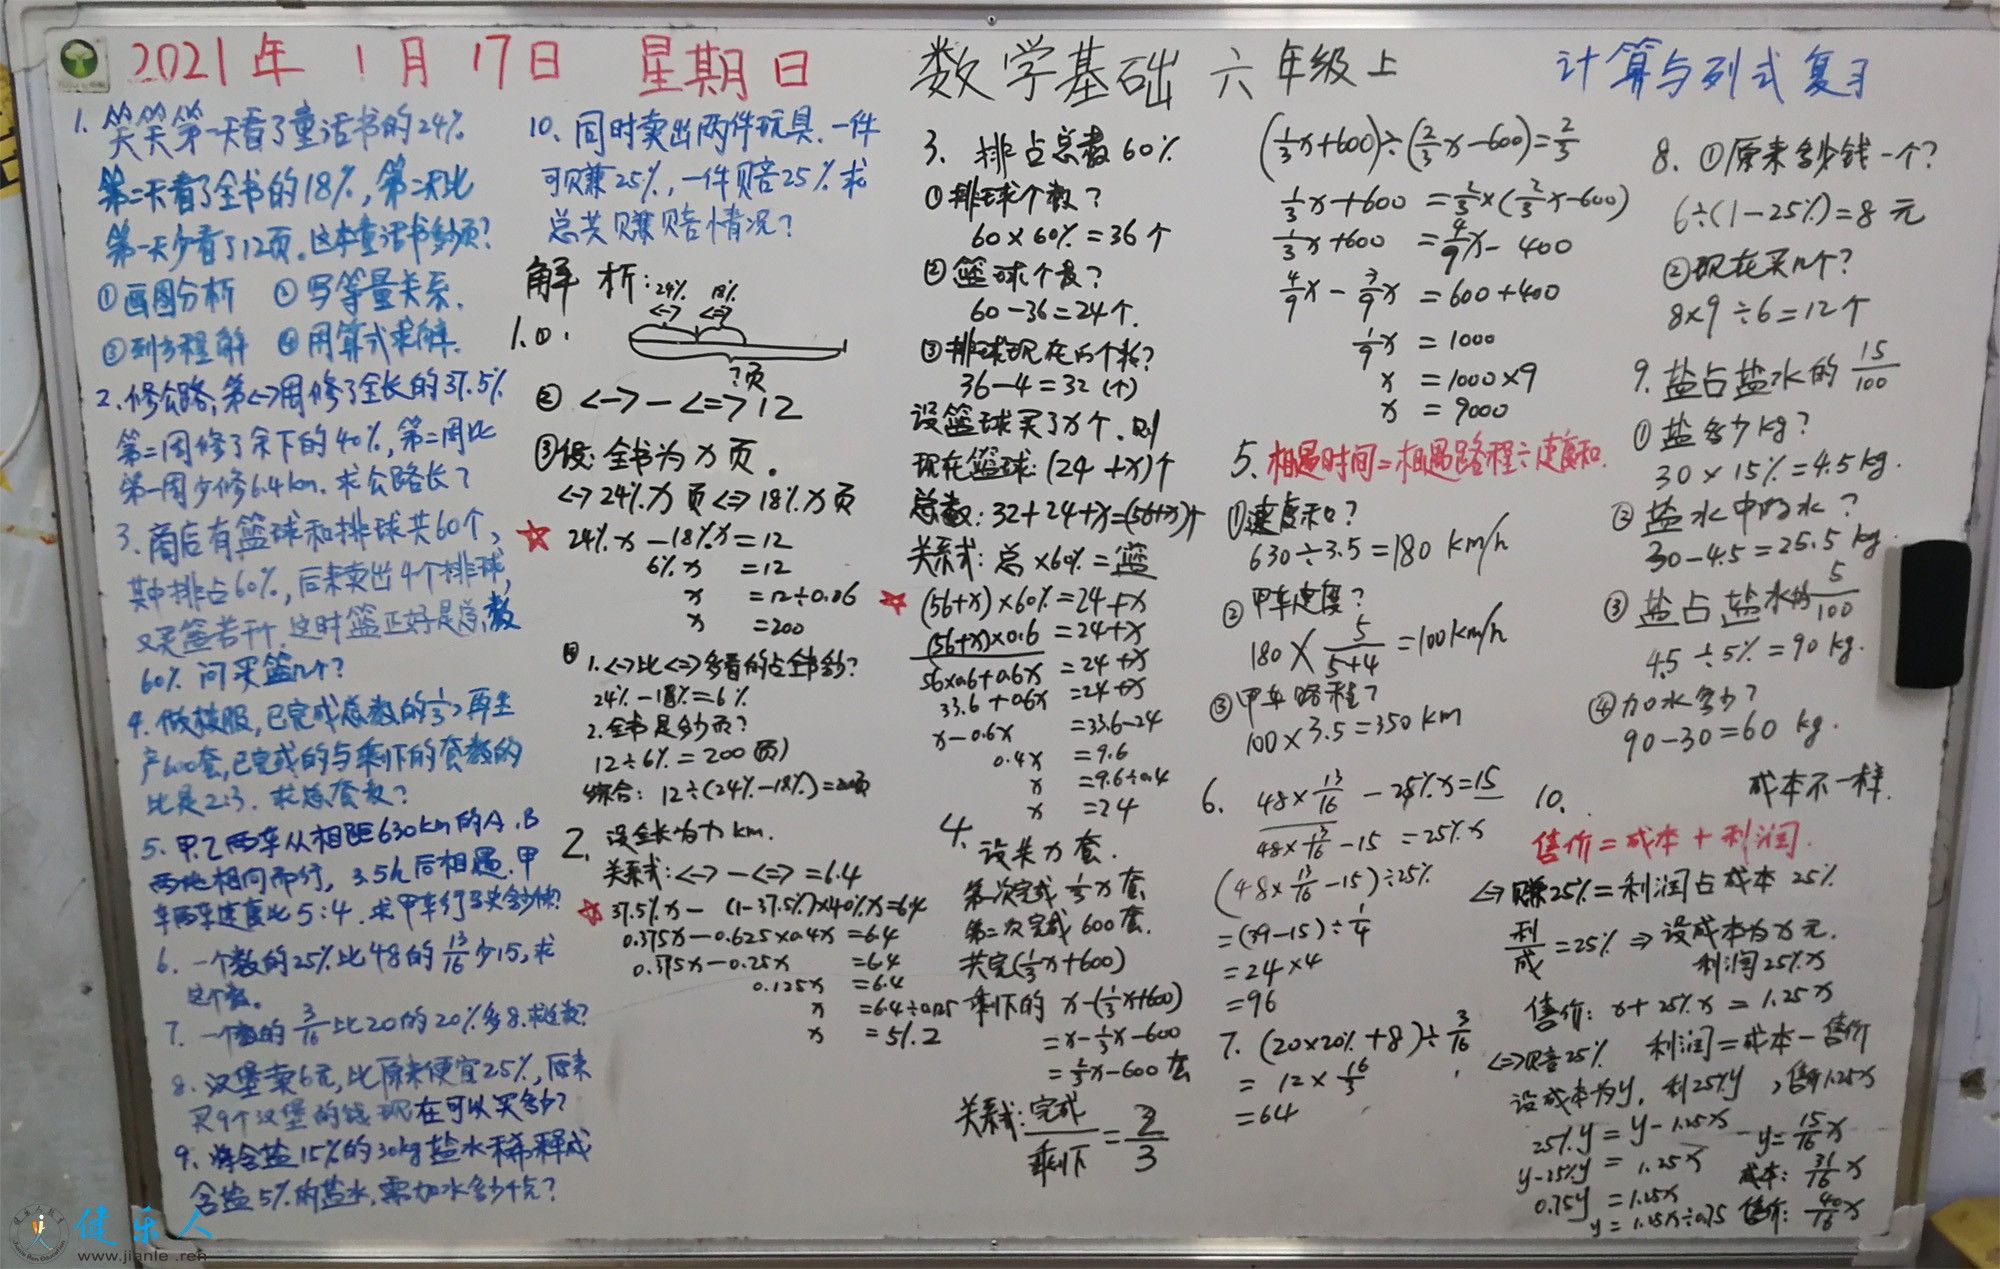 2021年 1月 17日 星期日 数学基础 六年级上 计算与列式复习
1. 笑笑第一天看了童话书的24%
第二天看了全书的18%,第二天比
第一天少看了12页。这本童话书多少页?
①画图分析 ②写等量关系.
③列方程解 ④用算式求解.
2. 修公路,第<->周修了全长的37.5%
第二周修了余下的40%,第二周比
第一周少修6.4km. 求公路长?
3. 商店有篮球和排球共60个,
其中排占60%,后来卖出4个排球,
又买篮若干个,这时篮正好是总数
60% 问买篮几个?
4. 做校服,已完成总数的1/3,再生
产600套,已完成的与剩下的套数的
比是2:3. 求总套数?
5. 甲.乙两车从相距630km的A.B
两地相向而行, 3.5h后相遇.甲
车两车速度比5:4.求甲车行
6. 一个数的25%比48的13/16少15,求
这个数。
7. 一个数的3/16比20的20%多8.求这数?
8. 汉堡卖6元,比原来便宜25%,原来
买9个汉堡的钱现在可以买多少?
9. 将含盐15%的30kg盐水稀释成
含盐5%的盐水,需加水多少千克?
10. 同时卖出两件玩具.一件
可赚25%,一件赔25%求
总共赚赔情况?
解析:
24% 18%
<-> <=>
1. ①.
?页
② <-> - <=> 12
③设:全书为x页。
<->24%x页<=>18%x页
☆ 24%x - 18%x = 12
6%x = 12
x = 12÷0.06
x = 200
④ 1.<->比<=>多看的占全书多少?
24% - 18% = 6%
2. 全书是多少页?
12÷6% = 200(页)
综合: 12÷(24%-18%)=200页
2. 设全长为x km.
关系式: <-> - <=> = 6.4
☆ 37.5%x - (1-37.5%)×40%x=6.4
0.375x-0.625×0.4x = 6.4
0.375x-0.25x = 6.4
0.125x = 6.4
x = 6.4÷0.125
x = 51.2
3. 排占总数60%
①排球个数?
60×60% = 36个
②篮球个数?
60-36=24个.
③排球现在的个数?
36-4=32(个)
设篮球买了x个.则
现在篮球: (24+x)个
总数: 32+24+x=(56+x)个
关系式: 总×60% = 篮
☆ (56+x)×60% = 24+x
(56+x)×0.6 = 24+x
56×0.6+0.6x = 24+x
33.6+0.6x = 24+x
x-0.6x = 33.6-24
0.4x = 9.6
x = 9.6÷0.4
x = 24
4. 设共x套.
第一次完成1/3x套
第二次完成600套.
共完(1/3x+600)
剩下的 x-(1/3x+600)
= x-1/3x-600
= 2/3x-600套
关系式: 完成/剩下 = 2/3
(1/3x+600)÷(2/3x-600)=2/3
1/3x+600 = 2/3×(2/3x-600)
1/3x+600 = 4/9x-400
4/9x-3/9x = 600+400
1/9x = 1000
x = 1000×9
x = 9000
5. 相遇时间=相遇路程÷速度和.
①速度和?
630÷3.5=180 km/h
②甲车速度?
180×5/(5+4)=100km/h
③甲车路程?
100×3.5=350km
6. 48×13/16-25%x=15
48×13/16-15 = 25%x
(48×13/16-15)÷25%
=(39-15)÷1/4
=24×4
=96
7. (20×20%+8)÷3/16
= 12×16/3
=64
8. ①原来多少钱一个?
6÷(1-25%)=8元
②现在买几个?
8×9÷6=12个
9. 盐占盐水的15/100
①盐多少kg?
30×15%=4.5kg.
②盐水中的水?
30-4.5=25.5kg.
③盐占盐水的5/100
4.5÷5%=90kg.
④加水多少?
90-30=60kg.
10. 成本不一样.
售价=成本+利润.
<->赚25%=利润占成本25%
利/成=25%⇒设成本为x元.
利润25%x
售价: x+25%x = 1.25x
<=>赔25% 利润=成本-售价
设成本为y,利25%y,售价1.25x
25%y = y-1.25x
y-25%y = 1.25x
0.75y = 1.25x
y = 1.25x÷0.75
y=15/16x
成本: 31/16x
售价: 40/16x
健乐人
www.jianle.ren